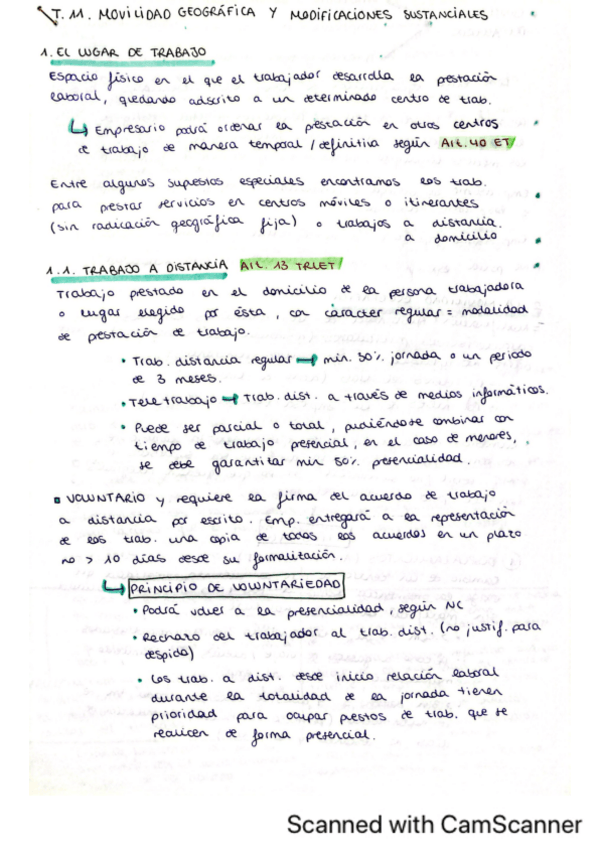 T. 11. MOVILIDAD GEOGRÁFICA Y MODIFICACIONES SUSTANCIALES
1. EL LUGAR DE TRABAJO
Espacio físico en el que el trabajador desarrolla la prestación
laboral, quedando adscrito a un determinado centro de trab.
↳ Empresario podrá ordenar la prestación en otros centros
de trabajo de manera temporal / definitiva según Art. 40 ET
Entre algunos supuestos especiales encontramos los trab.
para prestar servicios en centros móviles o itinerantes
(sin radicación geográfica fija) o trabajos a distancia.
a domicilio
1.1. TRABAJO A DISTANCIA Art. 13 TRLET
Trabajo prestado en el domicilio de la persona trabajadora
o lugar elegido por ésta, con carácter regular = modalidad
de prestación de trabajo.
• Trab. distancia regular → min. 30% jornada o un periodo
de 3 meses.
• Teletrabajo → Trab. dist. a través de medios informáticos.
• Puede ser parcial o total, pudiéndose combinar con
tiempo de trabajo presencial, en el caso de menores,
se debe garantizar min 50% presencialidad.
▪ VOLUNTARIO y requiere la firma del acuerdo de trabajo
a distancia por escrito. Emp. entregará a la representación
de los trab. una copia de todos los acuerdos en un plazo
no > 10 días desde su formalización.
↳ PRINCIPIO DE VOLUNTARIEDAD
• Podrá volver a la presencialidad, según NC
• Rechazo del trabajador al trab. dist. (no justif. para
despido)
• Los trab. a dist. desde inicio relación laboral
durante la totalidad de la jornada tienen
prioridad para ocupar puestos de trab. que se
realicen de forma presencial.
Scanned with CamScanner